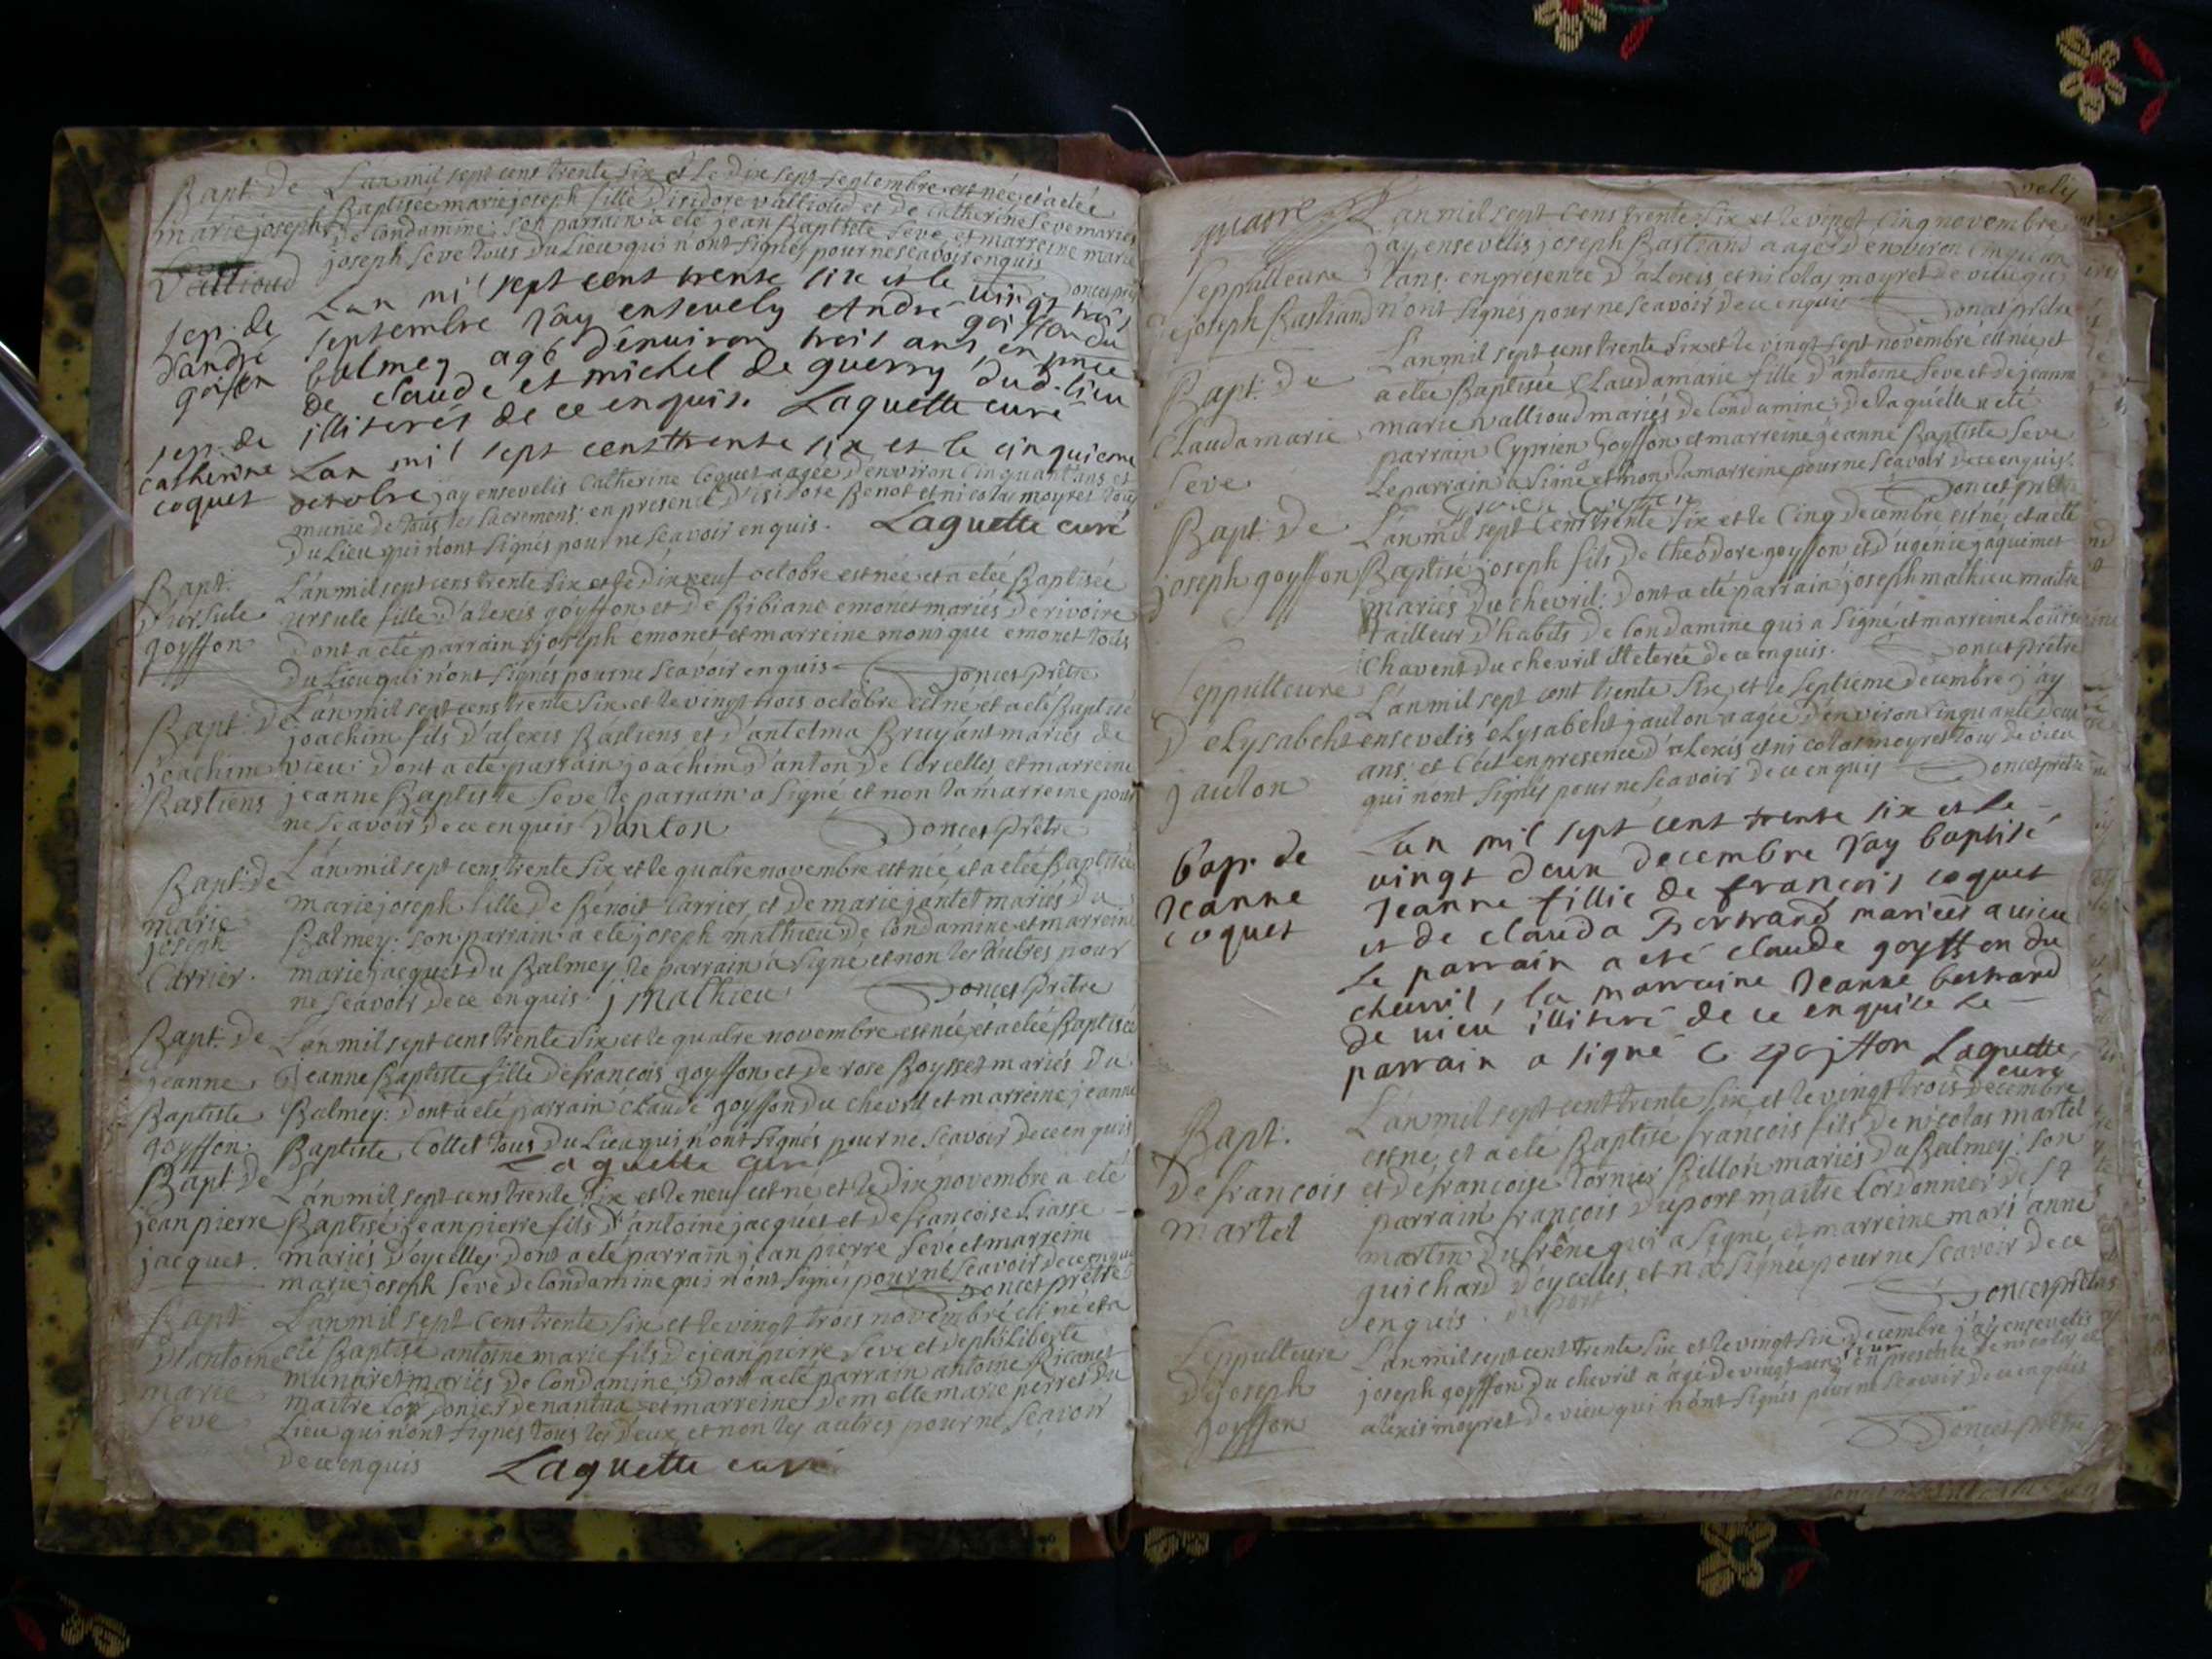 Bapt. de
marie joseph
Sevoz
vallioud
L'an mil sept cens trente six et le dix sept septembre est née et a eté
Baptisée marie joseph fille d'isidore vallioud et de Catherine Seve mariés
de Condamine; son parrain a eté jean Baptiste Seve et marreine marie
joseph Seve tous du Lieu qui n'ont signés pour ne scavoir enquis
Doncet prêtre
sep. de
d'andré
goisson
Lan mil sept cent trente six et le vingt trois
septembre j'ay ensevely André goiffon du
balmey agé d'environ trois ans en pnce
de claude et michel de guerry dud. lieu
illiterés de ce enquis. Laguette curé
sep. de
catherine
coquet
Lan mil sept cent trente six et le cinquieme
octobre j'ay ensevelis Catherine Coquet aagée d'environ Cinquant'ans et
munie de tous les sacremens: en presence d'isidore Benot et nicolas moyret tous
du Lieu qui n'ont signés pour ne scavoir enquis. Laguette curé
Bapt.
d'ursule
goyffon
L'an mil sept cens trente six et le dix neuf octobre est née et a eteé Baptisée
ursule fille d'alexis goyffon et de Bibiane emonet mariés de rivoire
dont a eté parrain joseph emonet et marreine monique emonet tous
du Lieu qui n'ont signés pour ne scavoir enquis Doncet prêtre
Bapt. de
joachim
Bastiens
L'an mil sept cens trente six et le vingt trois octobre est né et a eté Baptisé
joachim fils d'alexis Bastiens et d'antelma Bruyant mariés de
vieu; dont a eté parrain joachim d'anton de Corcelles, et marreine
jeanne Baptiste Seve le parrain a signé et non la marreine pour
ne scavoir de ce enquis Danton Doncet prêtre
Bapt. de
marie
joseph
Carrier.
L'an mil sept cens trente six et le quatre novembre est née et a eteé Baptisée
marie joseph fille de Benoit Carrier et de marie jantet mariés du
Balmey: son parrain a eté joseph mathieu de Condamine et marreine
marie jacquet du Balmey le parrain a signé et non les autres pour
ne scavoir de ce enquis. j mathieu Doncet prêtre
Bapt. de
jeanne
Baptiste
goyffon.
L'an mil sept cens trente six et le quatre novembre est née et a eteé Baptisée
jeanne Baptiste fille de francois goyffon et de rose Boysset mariés du
Balmey: dont a eté parrain claude goyffon du chevril et marreine jeanne
Baptiste Collet tous du Lieu qui n'ont signés pour ne scavoir de ce enquis
Laguette curé
Bapt de
jean pierre
jacquet.
L'an mil sept cens trente six et le neuf est né et le dix novembre a eté
Baptisé jean pierre fils d'antoine jacquet et de francoise Liasse
mariés d'oycelles dont a eté parrain jean pierre Seve et marreine
marie joseph Seve de Condamine qui n'ont signés pour ne scavoir de ce enquis
Doncet prêtre
Bapt
d'antoine
marie
Seve
L'an mil sept cens trente six et le vingt trois novembre est né et a
eté Baptisé antoine marie fils de jean pierre Seve et de philiberte
munaret mariés de Condamine; dont a eté parrain antoine Ricanet
maitre Cordonier de nantua et marreine demelle marie perret du
Lieu qui n'ont signés tous les deux et non les autres pour ne scavoir
de ce enquis Laguette curé
quatre
Seppulteure
de joseph Bastiand
L'an mil sept cens trente six et le vingt cinq novembre
j'ay ensevelis joseph Bastiand aagé d'environ cinquan
t'ans. en presence d'alexis et nicolas moyret de vieu qui
n'ont signés pour ne scavoir de ce enquis Doncet prêtre
Bapt. de
Claudamarie
Seve
L'an mil sept cens trente six et le vingt sept novembre est née, et
a eteé Baptisée Claudamarie fille d'antoine Seve et de jeanne
marie vallioud mariés de Condamine; de laquelle a eté
parrain Cyprien Goyffon et marreine jeanne Baptiste Seve
Le parrain a signé et non la marreine pour ne scavoir de ce enquis.
Doncet prêtre
Bapt. de
joseph goyffon
L'an mil sept cens trente six et le Cinq decembre est né, et a eté
Baptisé joseph fils de theodore goyffon et d'ugenie jaquemet
mariés du chevril: dont a eté parrain joseph mathieu maitre
tailleur d'habits de Condamine qui a signé et marreine Louise
Chavent du chevril illeterée de ce enquis. Doncet prêtre
Seppulteure
d'elysabeht
jaulon
L'an mil sept cent trente six, et le septieme decembre j'ay
ensevelis elysabeht jaulon aagée d'environ cinquante deux
ans. et c'est en presence d'alexis et nicolas moyret tous de vieu
qui n'ont signés pour ne scavoir de ce enquis Doncet prêtre
bap. de
Jeanne
coquet
Lan mil sept cent trente six et le
vingt deux decembre j'ay baptisé
Jeanne fillie de françois coquet
et de clauda Bertrand mariéés a vieu
Le parrain a eté claude goyffon du
chevril, la marraine Jeanne bertrand
de vieu illiteré de ce enquise Le
parrain a signé C goiffon Laguette
curé
Bapt.
de francois
martel
L'an mil sept cent trente six, et le vingt trois decembre
est né et a eté Baptisé francois fils de nicolas martel
et de francoise tornier Billon mariés du Balmey: son
parrain francois duport maitre Cordonnier de St
martin du frêne qui a signé, et marreine mari'anne
guichard d'oycelles, et n'a signée pour ne scavoir de ce
enquis. duport Doncet prêtre
Seppulteure
de joseph
goyffon
L'an mil sept cent trente six et le vingt six decembre j'ay ensevelis
joseph goyffon du chevril a agé de vingt un en presence de nicolas et
alexis moyret de vieu qui n'ont signés pour ne scavoir de ce enquis
Doncet prêtre